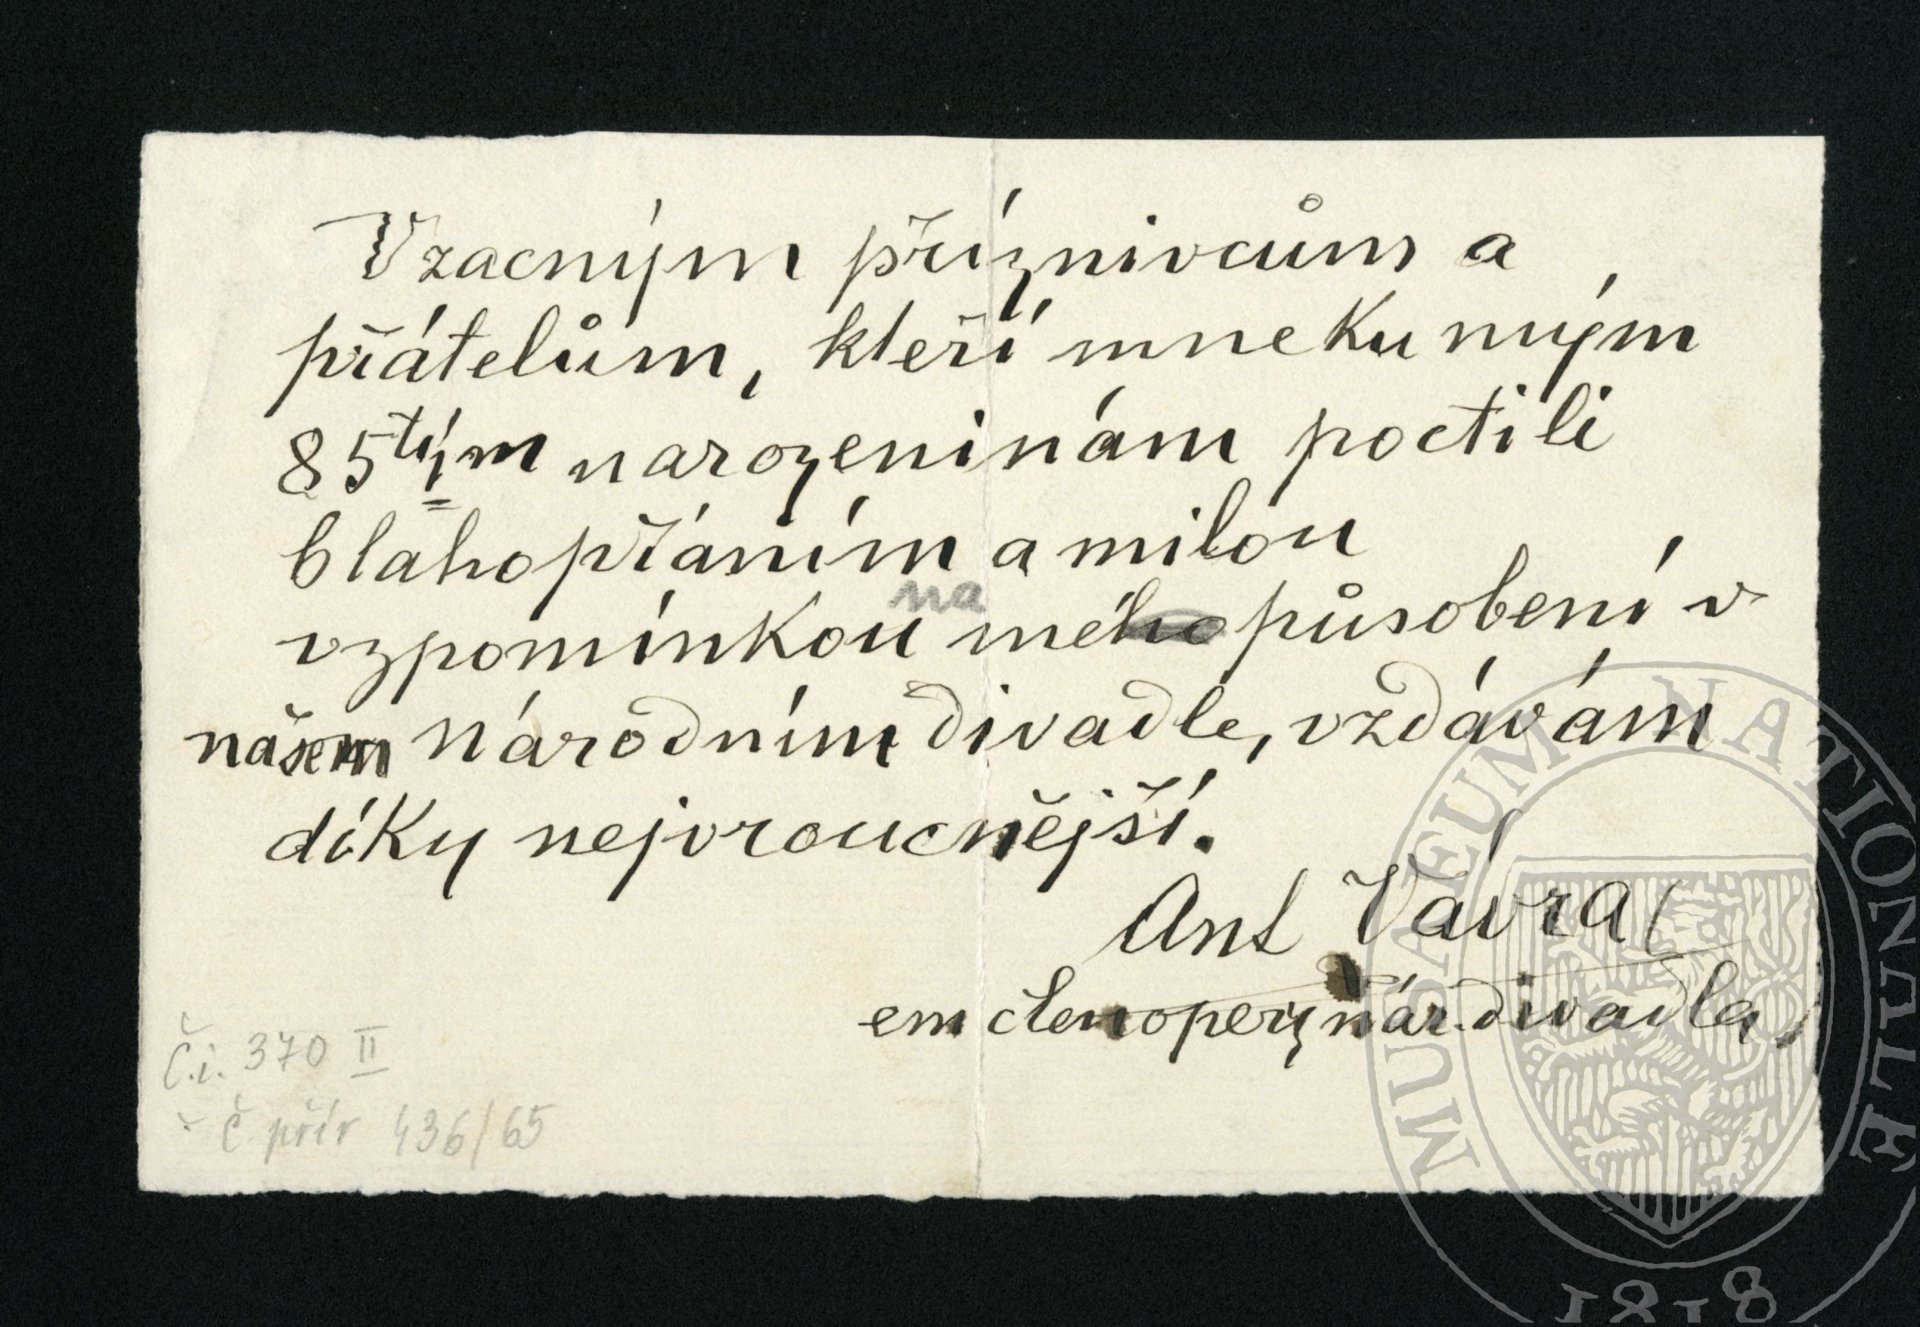 Vzacným příznivcům a
přátelům, kteří mne ku mým
85tým narozeninám poctili
blahopřáním a milou
na
vzpomínkou mého působení v
našem Národním divadle, vzdávám
díky nejvroucnější.
Ant Vávra
em člen opery nár. divadla
Č.i. 370 II
č přír 436/65
MUSAEUM NATIONALE
1818